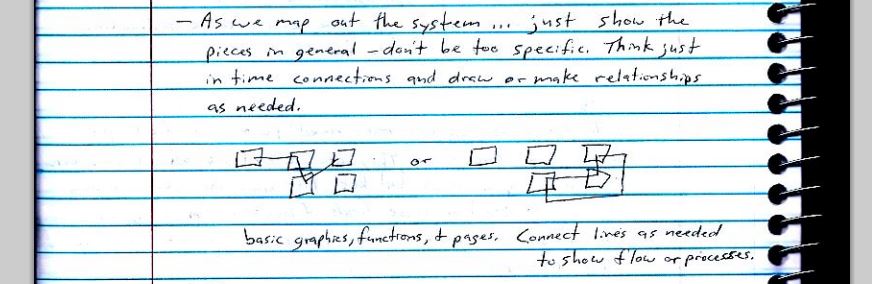 - As we map out the system ... just show the
pieces in general - don't be too specific. Think just
in time connections and draw or make relationships
as needed.
or
basic graphics, functions, + pages. Connect lines as needed
to show flow or processes.